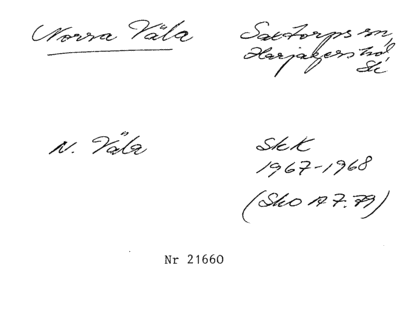 Norra Väla
Saxtorps sn,
Harjagers hd,
Sk
N. Väla
SkK
1967-1968
(SkO 17.7.79)
Nr 21660